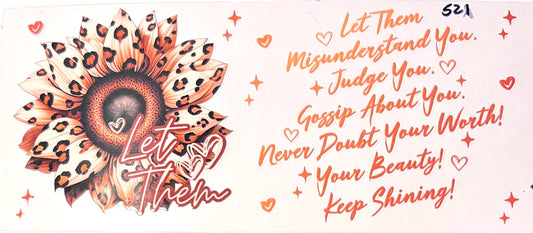 Let
Them
521
Let Them
Misunderstand You.
Judge You.
Gossip About You.
Never Doubt Your Worth!
Your Beauty!
Keep Shining!